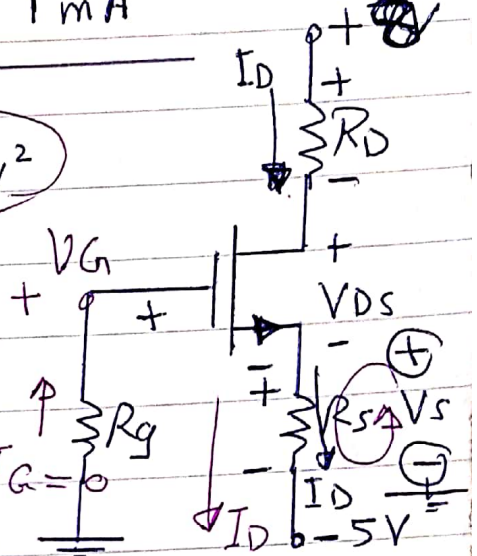 1 mA
+ V
+
ID
RD
-
2
VG
+
+
+
VDS
-
+
-
+
Rg
Rs
Vs
-
-
G=0
ID
ID
-5V